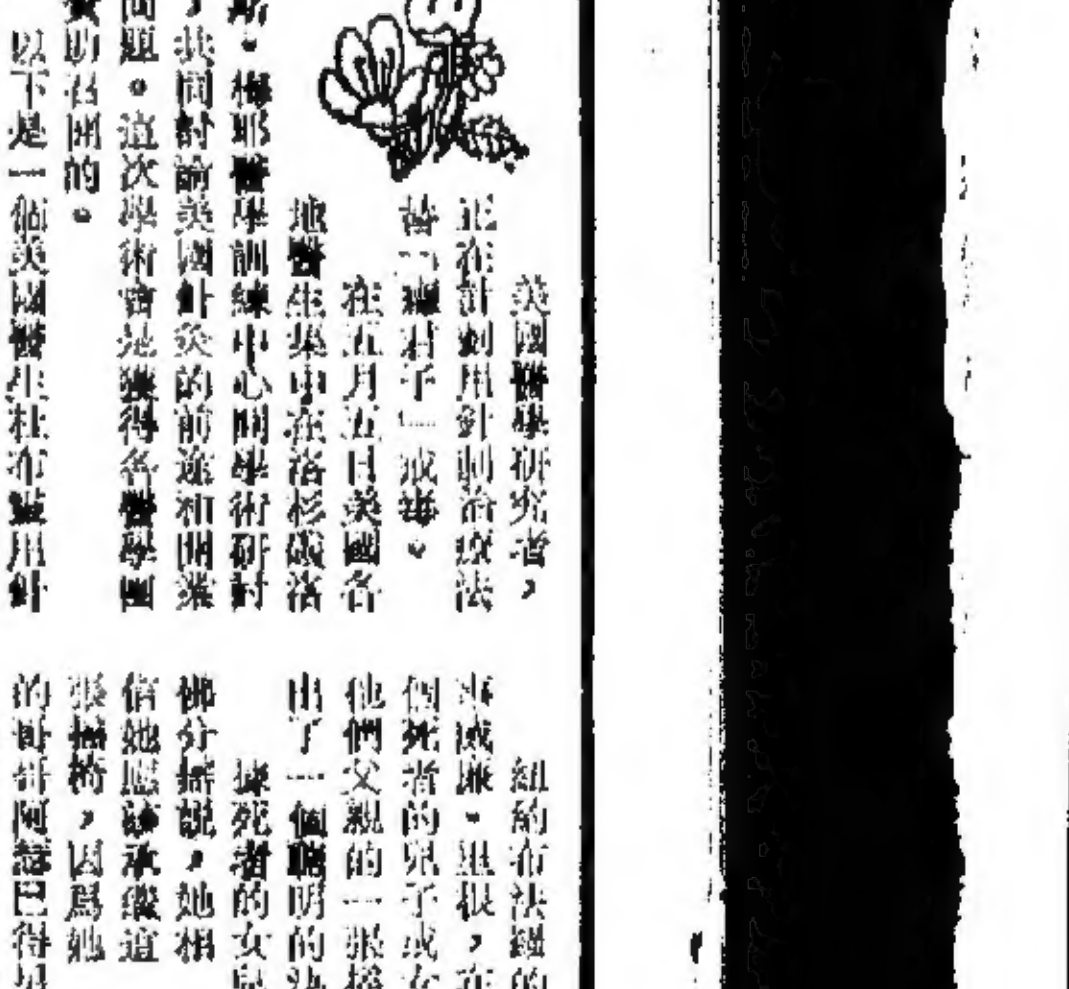 美國醫學研究者，
正在計劃用針刺治療法
替「癮君子」戒毒。
在五月五日美國各
地醫生集中在洛杉磯洛
斯。梅耶醫學訓練中心開學術研討
，共同討論美國針灸的前途和開業
問題。這次學術會是獲得各醫學團
資助召開的。
以下是一個美國醫生杜布用針
紐約布法羅的
威廉·里根，在
個死者的兒子或女
他們父親的一張搖
出了一個聰明的
據死者的女兒
佛分搖說，她相
信她應該承繼這
張搖椅，因爲她
的哥哥阿瑟已得